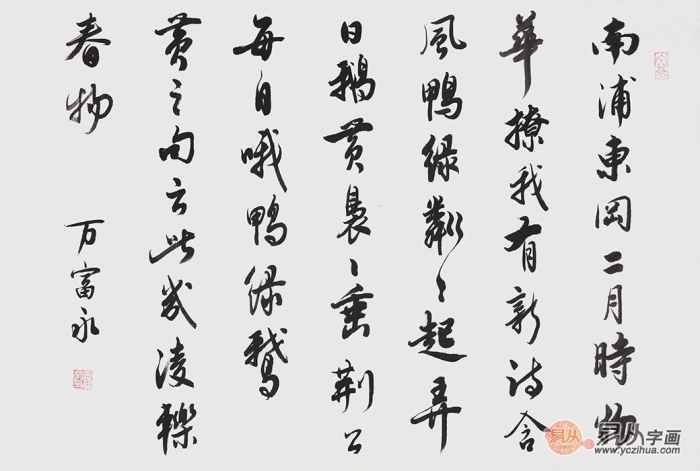 南浦東岡二月時物
華撩我有新詩含
風鴨緑粼〻起弄
日鵝黄裊〻垂荆公
每自哦鴨緑鵝
黄之句云此幾凌轢
春物
万富永
易从
易从字画
www.yczihua.com